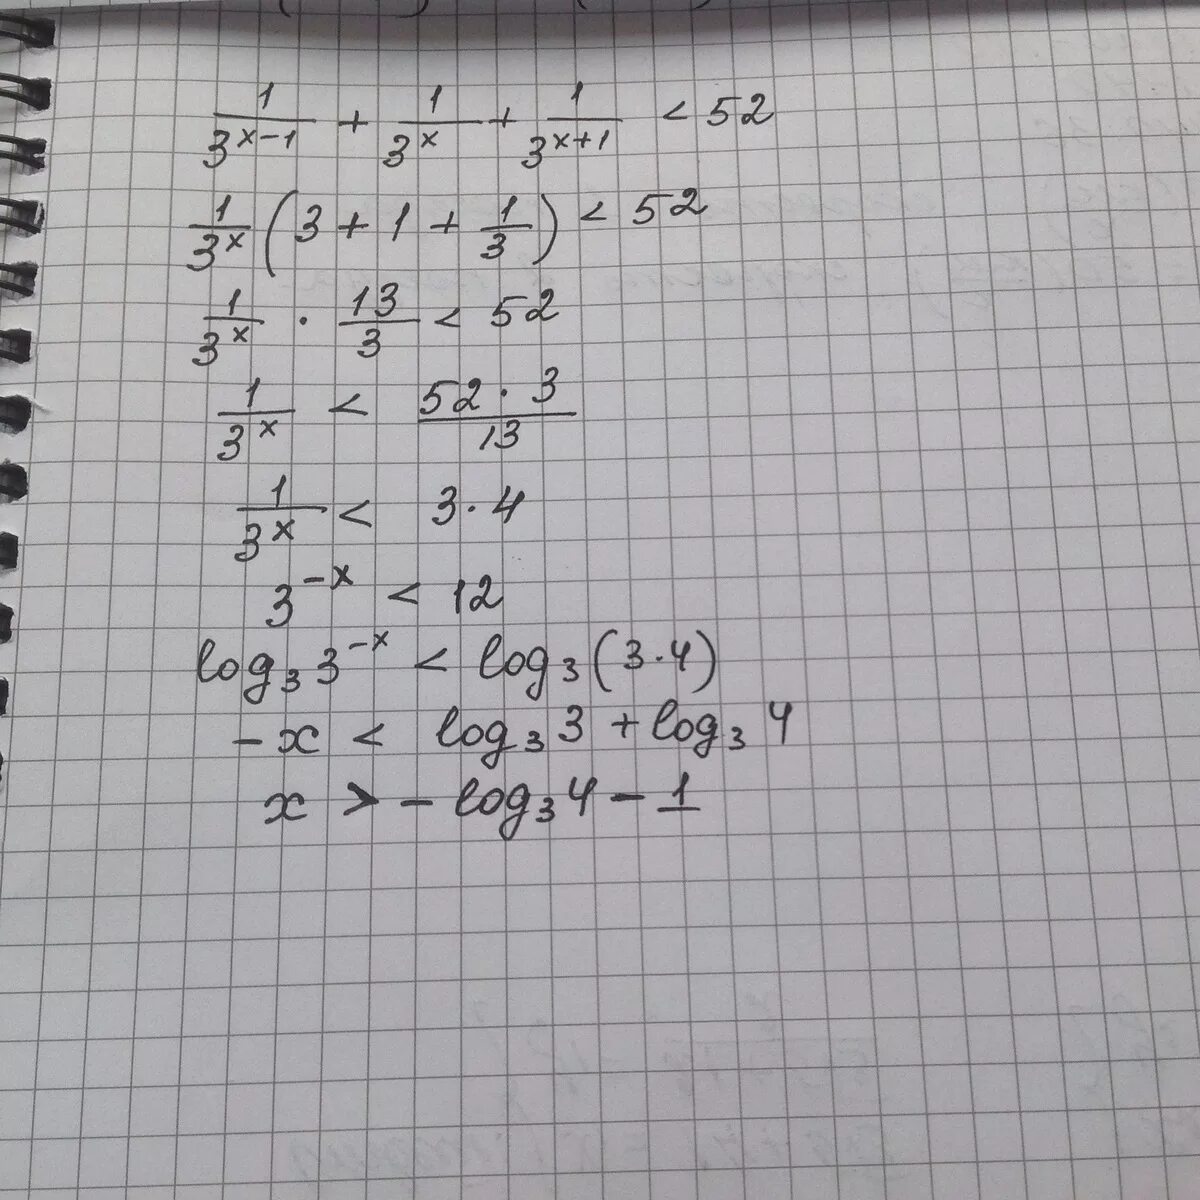 1/3^(x-1) + 1/3^x + 1/3^(x+1) < 52
1/3^x (3 + 1 + 1/3) < 52
1/3^x · 13/3 < 52
1/3^x < 52·3/13
1/3^x < 3·4
3^(-x) < 12
log₃ 3^(-x) < log₃(3·4)
-x < log₃ 3 + log₃ 4
x > - log₃ 4 - 1